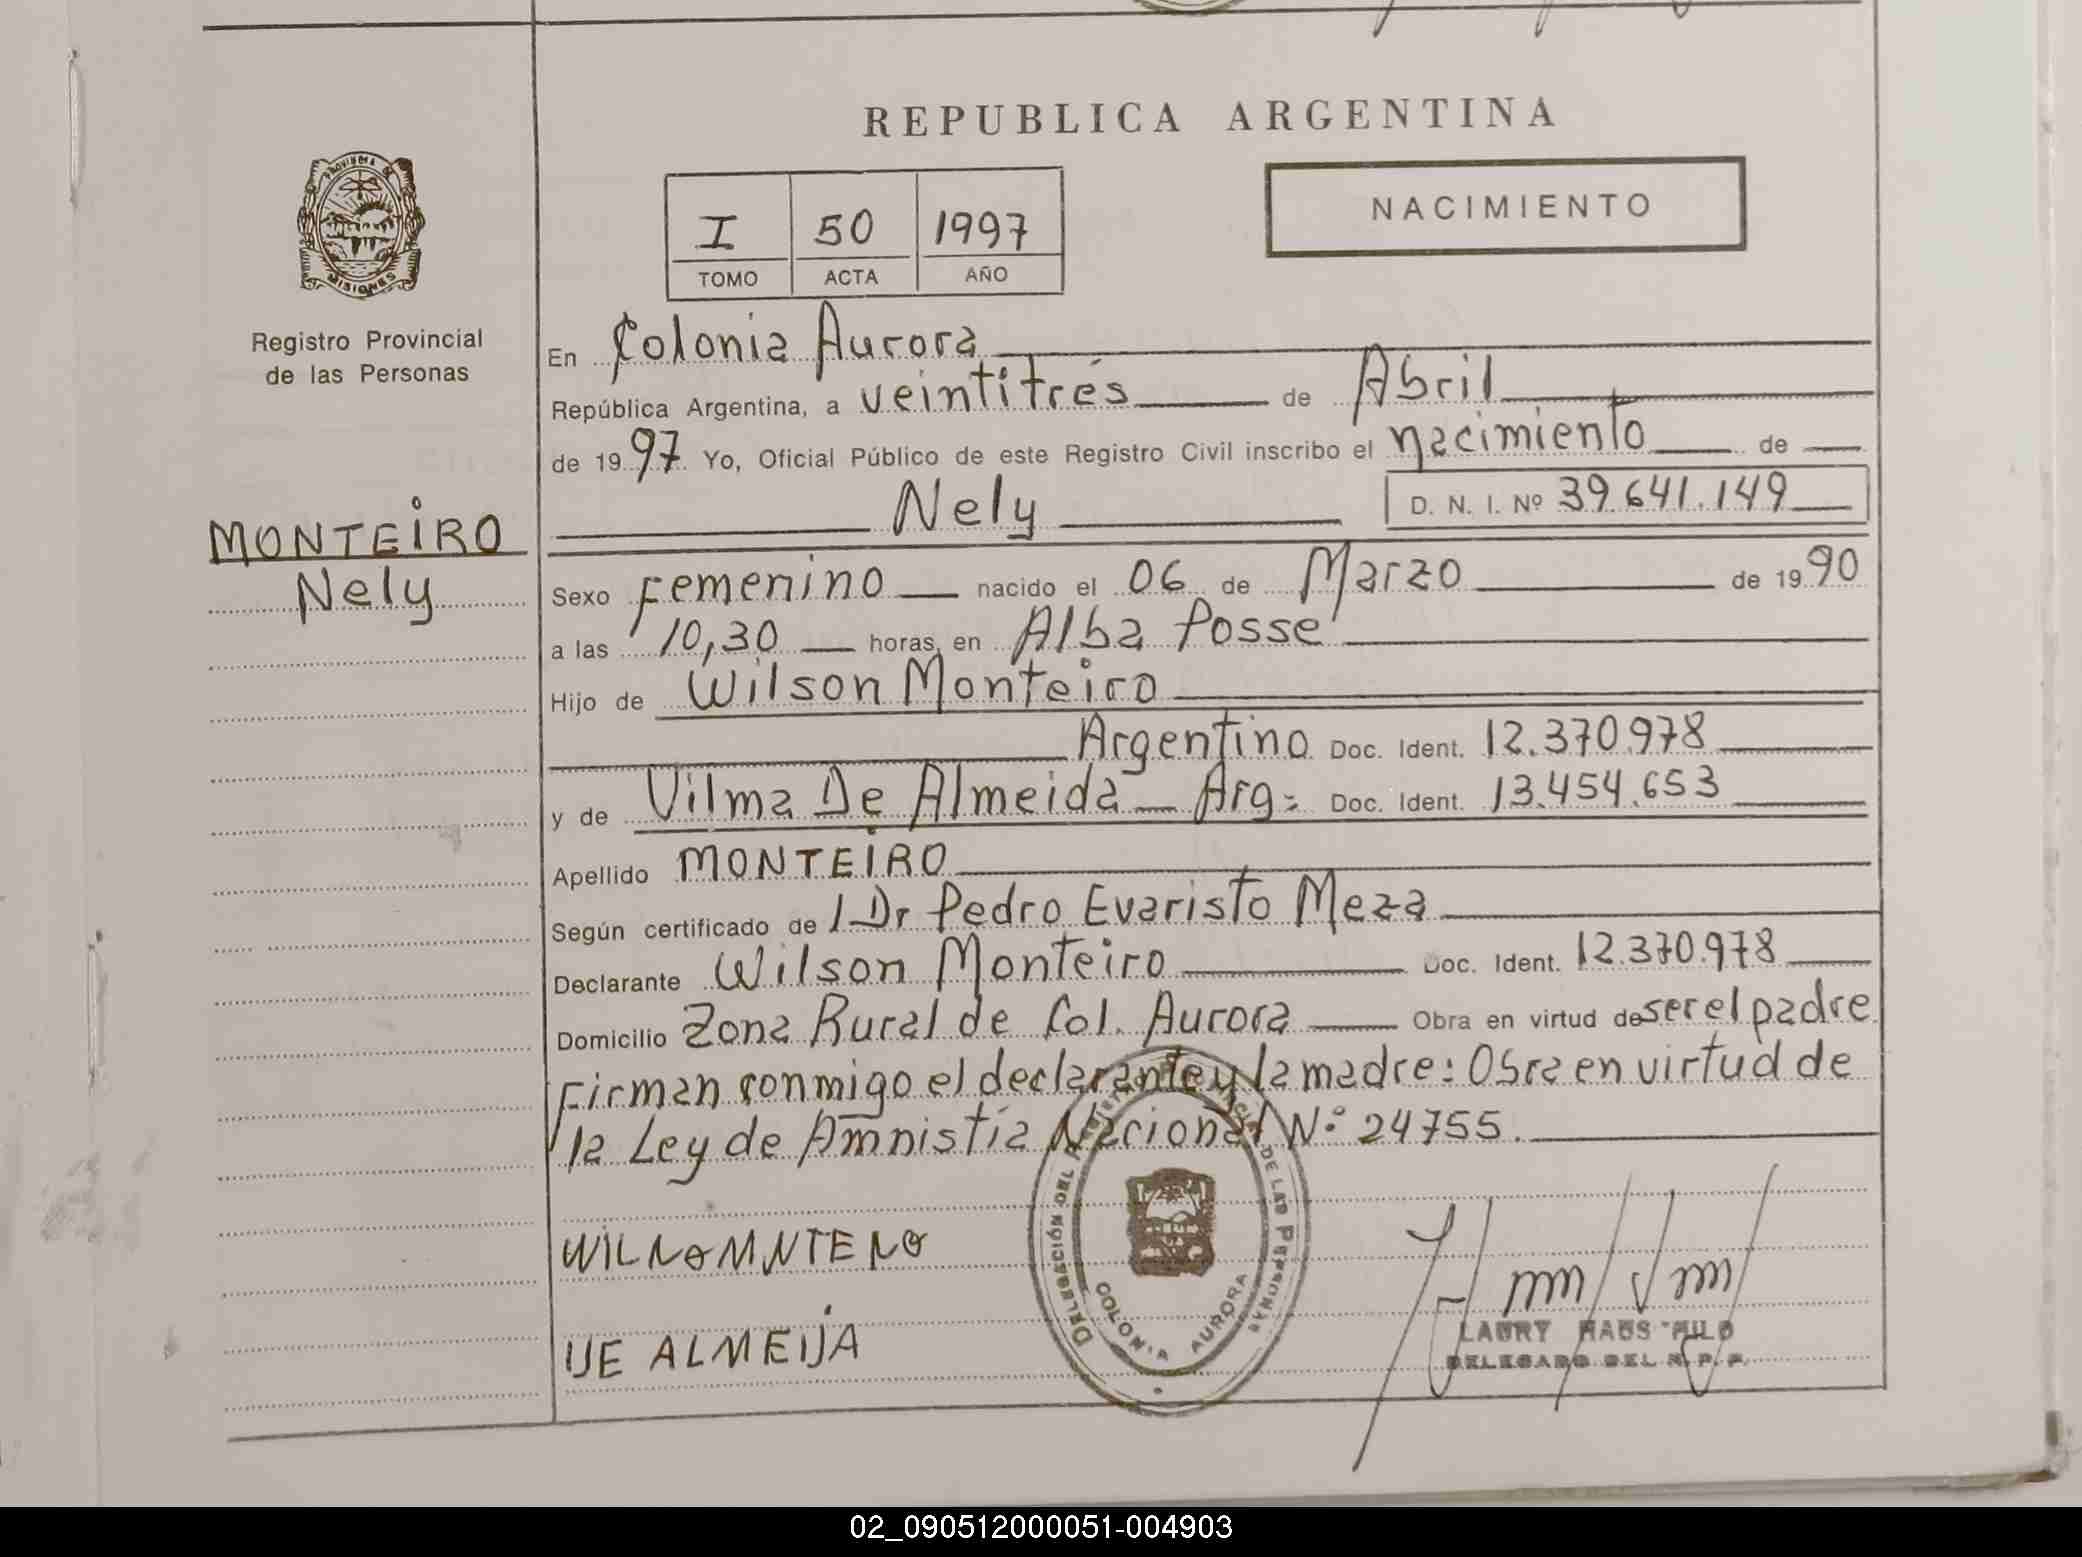 REPUBLICA ARGENTINA
PROVINCIA DE
MISIONES
Registro Provincial
de las Personas
MONTEIRO
Nely
I 50 1997
TOMO ACTA AÑO
NACIMIENTO
En Colonia Aurora
República Argentina, a veintitrés de Abril
de 1997 Yo, Oficial Público de este Registro Civil inscribo el nacimiento de
Nely D. N. I. Nº 39.641.149
Sexo Femenino nacido el 06 de Marzo de 1990
a las 10,30 horas, en Alba Posse
Hijo de Wilson Monteiro
Argentino Doc. Ident. 12.370.978
y de Vilma De Almeida Arg: Doc. Ident. 13.454.653
Apellido MONTEIRO
Según certificado de / Dr Pedro Evaristo Meza
Declarante Wilson Monteiro Doc. Ident. 12.370.978
Domicilio Zona Rural de Col. Aurora Obra en virtud de ser el padre
Firman conmigo el declarante y la madre: Obra en virtud de
la Ley de Amnistía Nacional Nº 24755.
DELEGACIÓN DEL REGISTRO PROVINCIAL DE LAS PERSONAS
COLONIA AURORA
WILNOMNTENO
UE ALMEIJA
LAURY HAUS
DELEGADO DEL R. P. P.
02_090512000051-004903